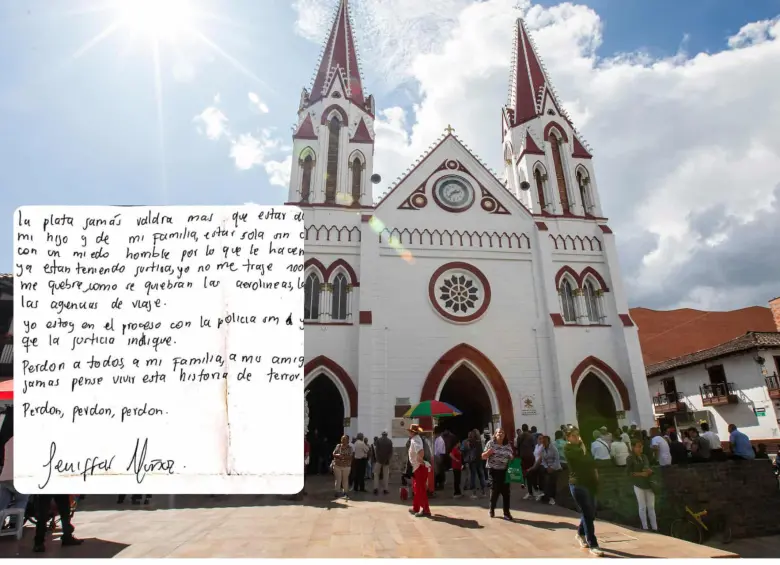 la plata jamás valdra mas que estar d
mi hijo y de mi Familia, estar sola sin c
con un miedo horrible por lo que le hacen
ya estan teniendo justicia, yo no me traje 100
me quebre como se quiebran las aerolineas, la
las agencias de viaje.
yo estoy en el proceso con la policia sin d y
que la justicia indique.
Perdon a todos, a mi Familia, a mis amig
jamas pense vivir esta historia de terror.
Perdon, perdon, perdon.
Jeniffer Muñoz.